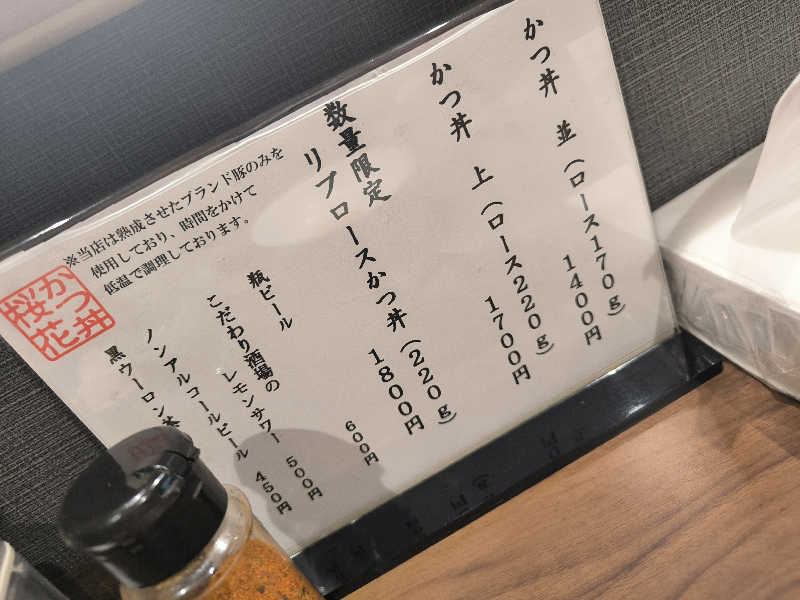 かつ丼 並（ロース170g） 1400円
かつ丼 上（ロース220g） 1700円
数量限定
リブロースかつ丼（220g） 1800円
※当店は熟成させたブランド豚のみを
使用しており、時間をかけて
低温で調理しております。
瓶ビール 600円
こだわり酒場の
レモンサワー 500円
ノンアルコールビール 450円
黒ウーロン
かつ丼
桜花